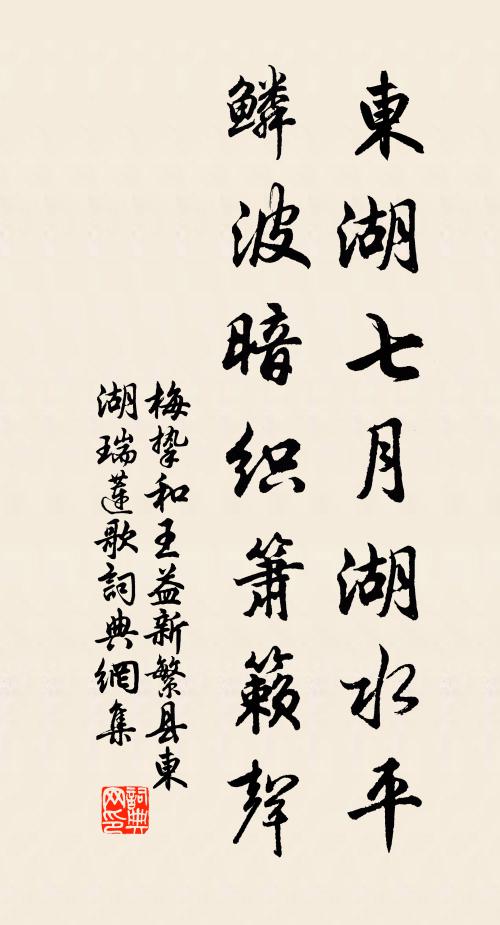 東湖七月湖水平
鳞波暗织簫籟聲
梅挚和王益新繁县東
湖瑞莲歌詞典網集
詞典
网印